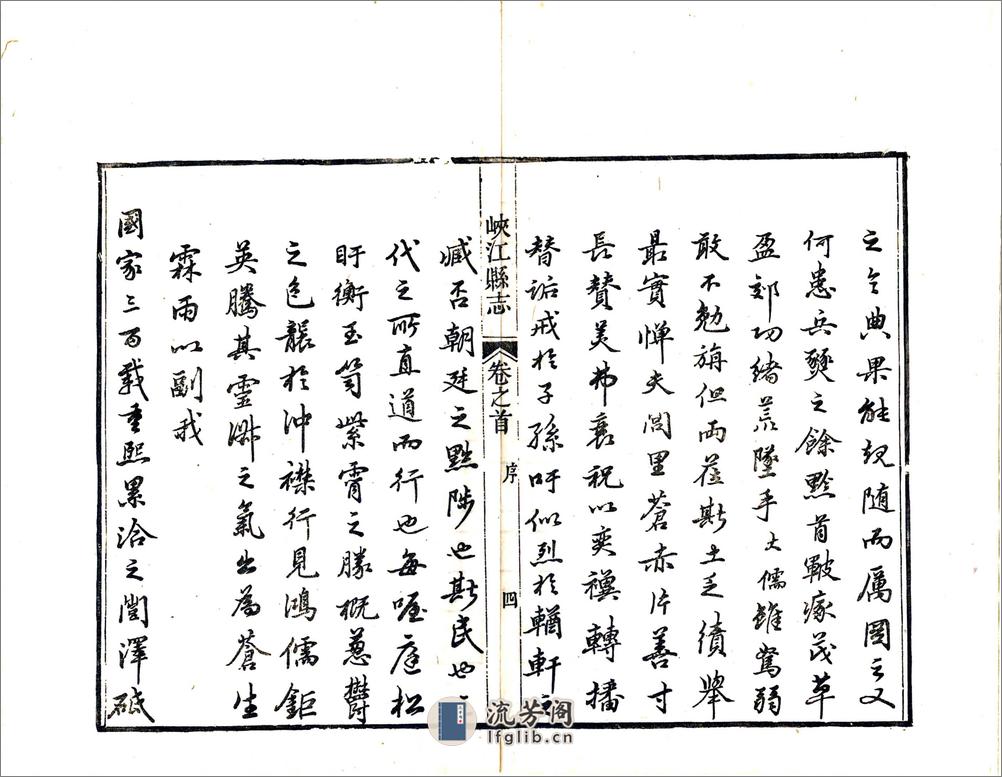 之令典果能規隨而厲圉之又
何患兵燹之餘黔首皸瘃茂草
盈郊功緒荒墜乎大儒雖駑弱
敢不勉旃但両莅斯土乏績舉
最實憚夫閭里蒼赤片善寸
長贊美弗衰祝以奕禩轉播
替詬戒於子孫吁似烈於輶軒之
峽江縣志
卷之首
序
四
臧否朝廷之黜陟也斯民也三
代之所直道而行也每喔庭松
盱衡玉笥紫霄之勝概蔥鬱
之色襲於沖襟行見鴻儒鉅
英騰其靈淑之氣出為蒼生
霖雨以副我
國家三百載重熙累洽之闓澤砥
流芳阁
lfglib.cn